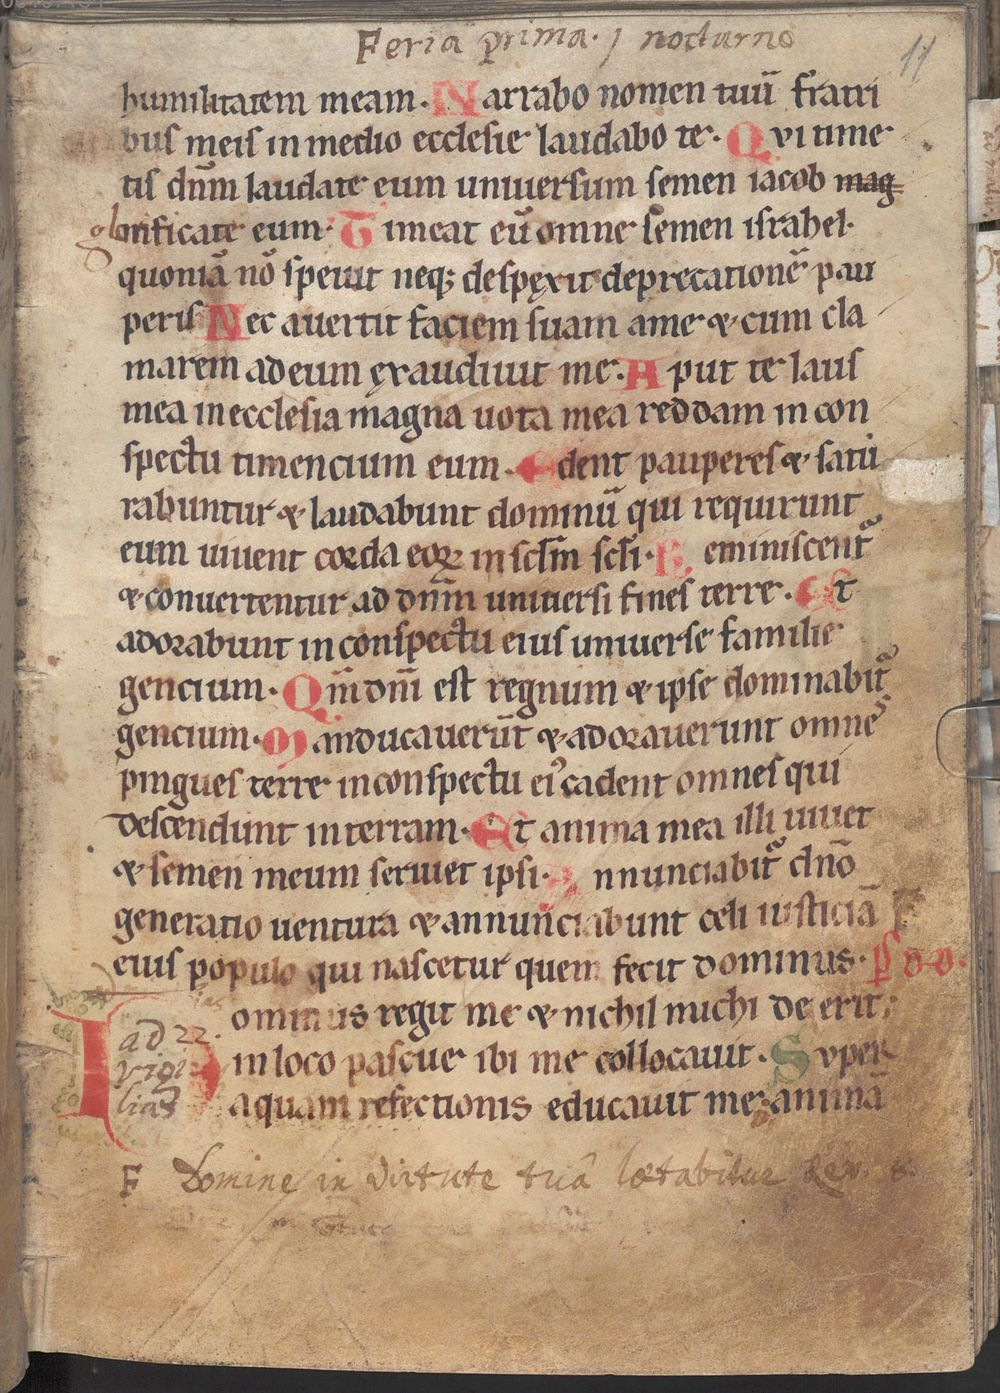 Feria prima · j nocturno
11
humilitatem meam· Narrabo nomen tuū fratri
bus meis in medio ecclesie laudabo te· Qvi time
tis dn̄m laudate eum uniuersum semen iacob mag
glorificate eum· Timeat eū omne semen israhel·
quoniā nō spreuit neq; despęxit deprecationē pau
peris Nec auertit faciem suam a me & cum cla
marem ad eum ęxaudiuit me· Aput te laus
mea in ecclesia magna uota mea reddam in con
spectu timencium eum· Edent pauperes & satu
rabuntur & laudabunt dominū qui requirunt
eum uiuent corda eoꝝ in sclm̄ scli· Reminiscent᷑
& conuertentur ad dn̄m uniuersi fines terre· Et
adorabunt in conspectu eius uniuerse familie
gencium· Qm̄ dn̄i est regnum & ipse dominabit᷑
gencium· Manducauerūt & adorauerunt omnes
pingues terre in conspectu ei᾽ cadent omnes qui
descendunt in terram· Et anima mea illi uiuet
& semen meum seruiet ipsi· Annunciabit᷑ dn̄o
generatio uentura & annunciabunt celi iusticiā
eius populo qui nascetur quem fecit dominus· p̄s dd·
Dominus regit me & nichil michi de erit;
in loco pascue ibi me collocauit· Svper
aquam refectionis educauit me; animā
ad 22.
vigi
lias
F Domine in virtute tuâ lætabitur Rex.